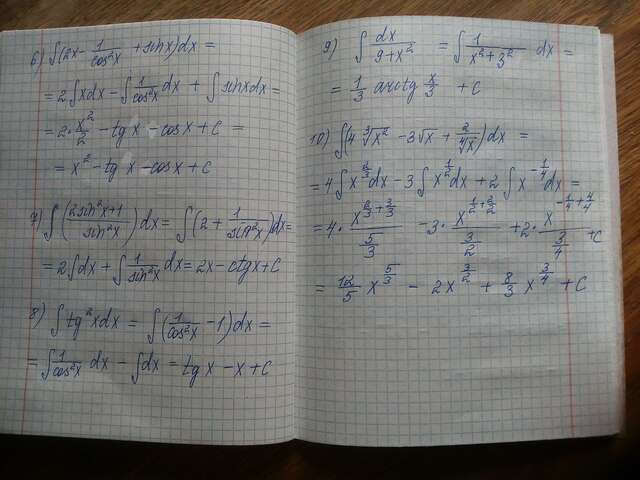 6) ∫(2x - 1/cos²x + sinx)dx =
= 2∫xdx - ∫1/cos²x dx + ∫sinxdx =
= 2·x²/2 - tg x - cosx + C =
= x² - tg x - cosx + C
7) ∫((2sin²x+1)/sin²x)dx = ∫(2 + 1/sin²x)dx =
= 2∫dx + ∫1/sin²x dx = 2x - ctgx + C
8) ∫tg²xdx = ∫(1/cos²x - 1)dx =
= ∫1/cos²x dx - ∫dx = tg x - x + C
9) ∫dx/(9+x²) = ∫1/(x²+3²) dx =
= 1/3 arctg x/3 + C
10) ∫(4∛x² - 3√x + 2/∜x)dx =
= 4∫x^(2/3)dx - 3∫x^(1/2)dx + 2∫x^(-1/4)dx =
= 4·x^(2/3+3/3)/(5/3) - 3·x^(1/2+2/2)/(3/2) + 2·x^(-1/4+4/4)/(3/4) + C
= 12/5 x^(5/3) - 2x^(3/2) + 8/3 x^(3/4) + C